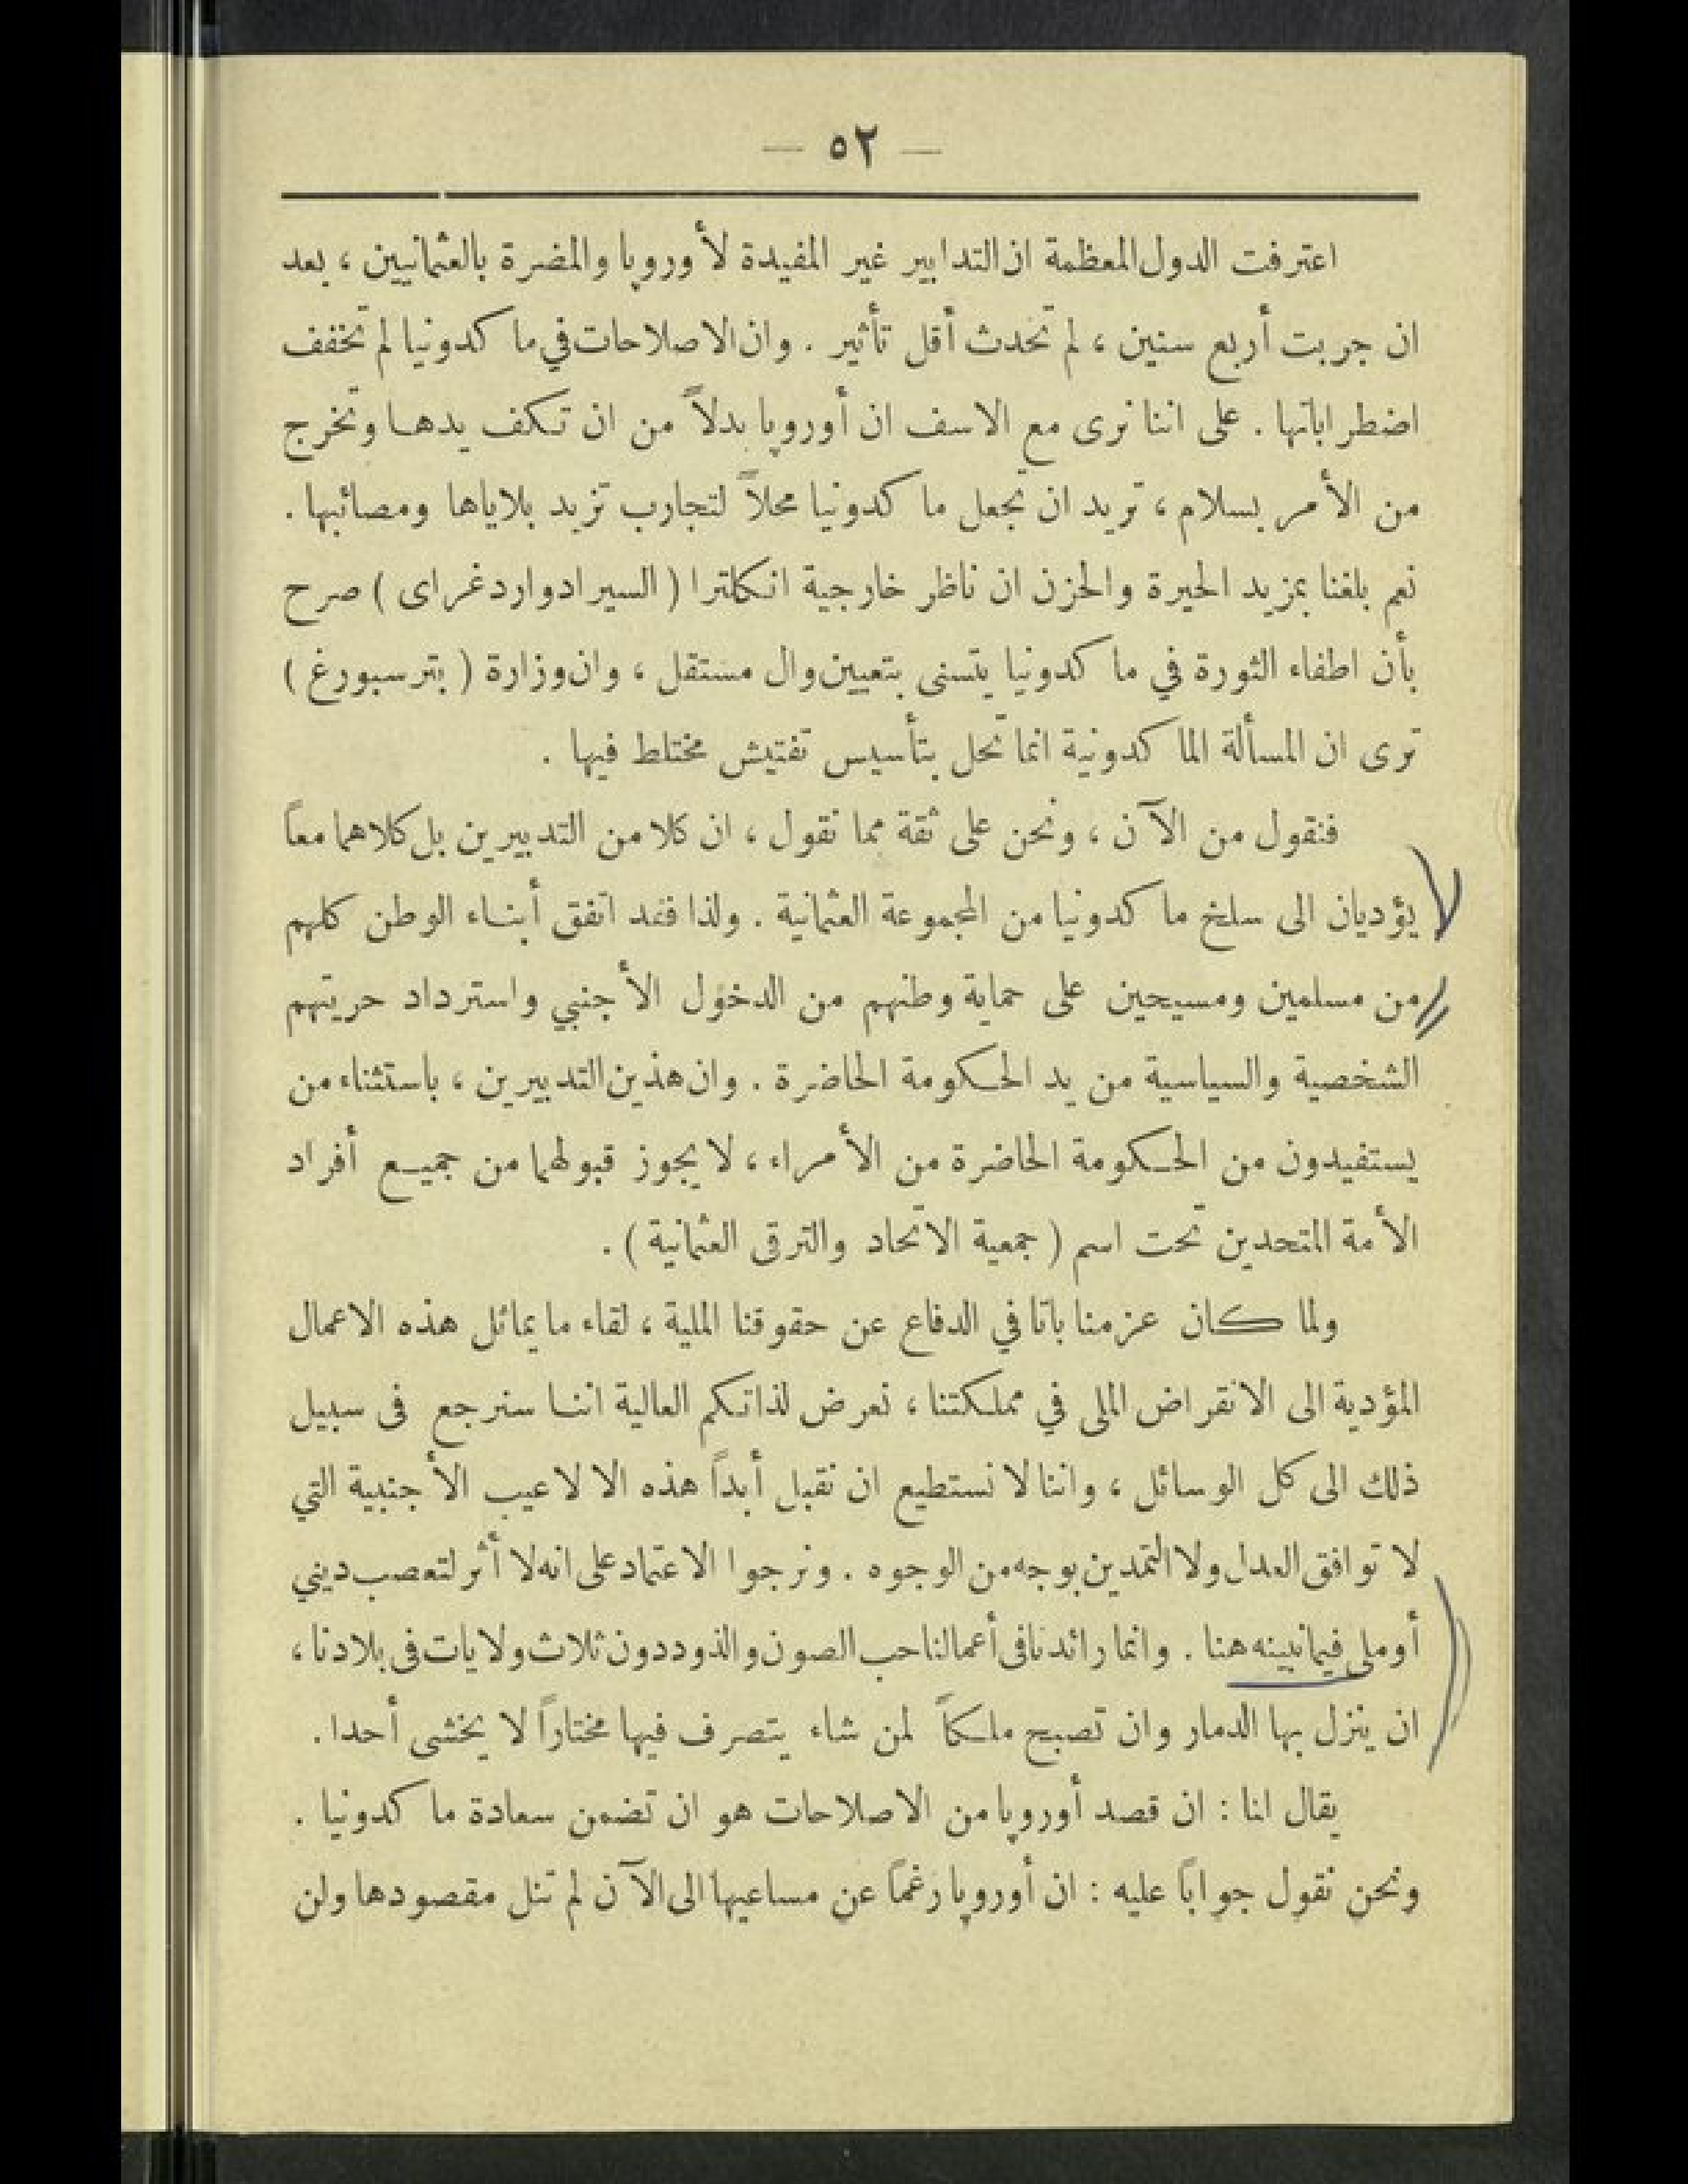 — ٥٢ —
اعترفت الدول المعظمة ان التدابير غير المفيدة لأوروبا والمضرة بالعثمانيين ، بعد
ان جربت أربع سنين ، لم تحدث أقل تأثير . وان الاصلاحات في ماكدونيا لم تخفف
اضطراباتها . على اننا نرى مع الاسف ان أوروبا بدلاً من ان تكف يدها وتخرج
من الأمر بسلام ، تريد ان تجعل ماكدونيا محلاً لتجارب تزيد بلاياها ومصائبها .
نعم بلغنا بمزيد الحيرة والحزن ان ناظر خارجية انكلترا ( السير ادوارد غراى ) صرح
بأن اطفاء الثورة في ماكدونيا يتسنى بتعيين وال مستقل ، وان وزارة ( بترسبورغ )
ترى ان المسألة الماكدونية انما تحل بتأسيس تفتيش مختلط فيها .
فنقول من الآن ، ونحن على ثقة مما نقول ، ان كلا من التدبيرين بل كلاهما معاً
يؤديان الى سلخ ماكدونيا من المجموعة العثمانية . ولذا فقد اتفق أبناء الوطن كلهم
من مسلمين ومسيحين على حماية وطنهم من الدخول الأجنبي واسترداد حريتهم
الشخصية والسياسية من يد الحكومة الحاضرة . وان هذين التدبيرين ، باستثناء من
يستفيدون من الحكومة الحاضرة من الأمراء ، لا يجوز قبولهما من جميع أفراد
الأمة المتحدين تحت اسم ( جمعية الاتحاد والترقى العثمانية ) .
ولما كان عزمنا باتا في الدفاع عن حقوقنا الملية ، لقاء ما يماثل هذه الاعمال
المؤدية الى الانقراض الملى في مملكتنا ، نعرض لذاتكم العالية اننا سنرجع فى سبيل
ذلك الى كل الوسائل ، واننا لا نستطيع ان نقبل أبداً هذه الالاعيب الأجنبية التي
لا توافق العدل ولا التمدين بوجه من الوجوه . ونرجوا الاعتماد على انه لا أثر لتعصب ديني
أو ملى فيما نبينه هنا . وانما رائدنا فى أعمالنا حب الصون والذود دون ثلاث ولايات فى بلادنا ،
ان ينزل بها الدمار وان تصبح ملكاً لمن شاء يتصرف فيها مختاراً لا يخشى أحدا .
يقال لنا : ان قصد أوروبا من الاصلاحات هو ان تضمن سعادة ماكدونيا .
ونحن نقول جواباً عليه : ان أوروبا رغماً عن مساعيها الى الآن لم تنل مقصودها ولن